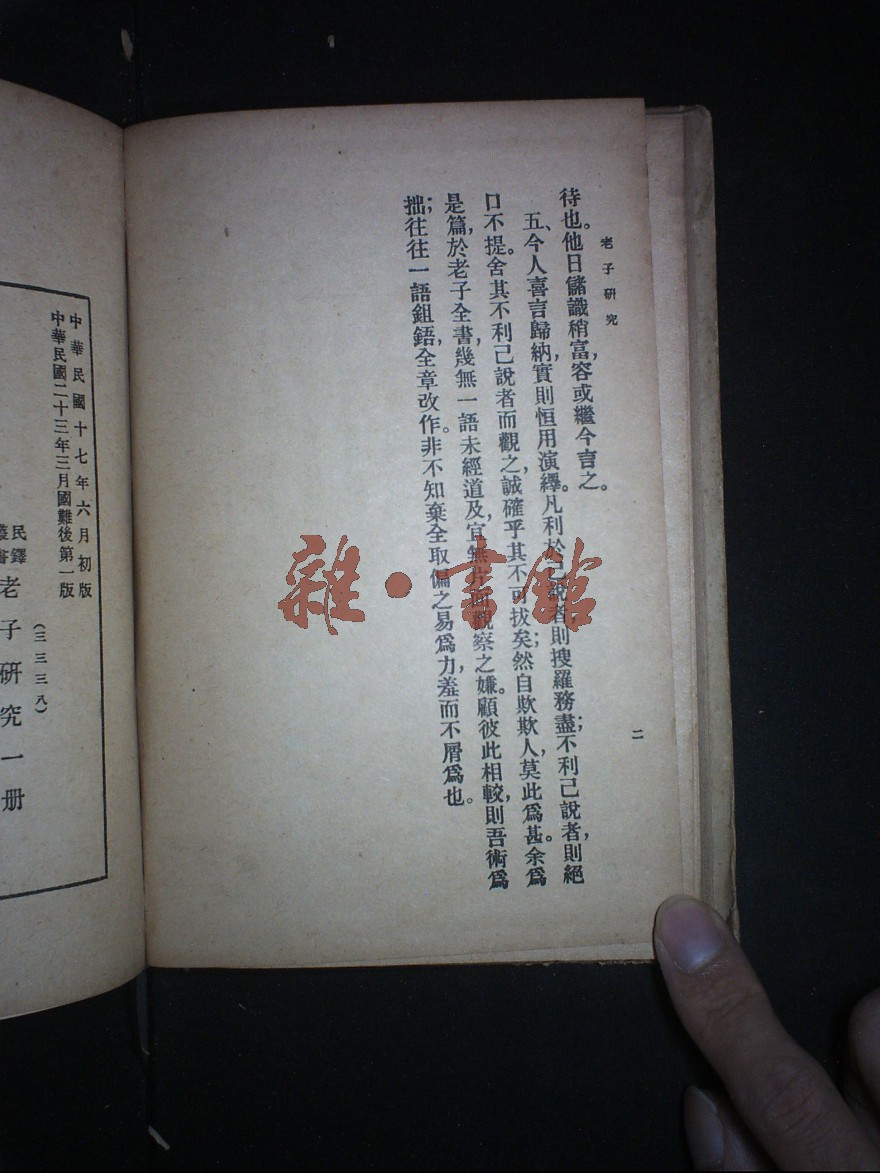 老子研究
待也。他日儲識稍富，容或繼今言之。
五、今人喜言歸納，實則恒用演繹。凡利於己說者，則搜羅務盡；不利己說者，則絕
口不提。舍其不利己說者而觀之，誠確乎其不可拔矣；然自欺欺人，莫此爲甚。余爲
是篇，於老子全書，幾無一語未經道及，宜無片面觀察之嫌。顧彼此相較，則吾術爲
拙；往往一語鉏鋙，全章改作。非不知棄全取偏之易爲力，羞而不屑爲也。
二
雜·書館
中華民國十七年六月初版
中華民國二十三年三月國難後第一版
(三三三八)
民鐸
叢書
老子研究一册